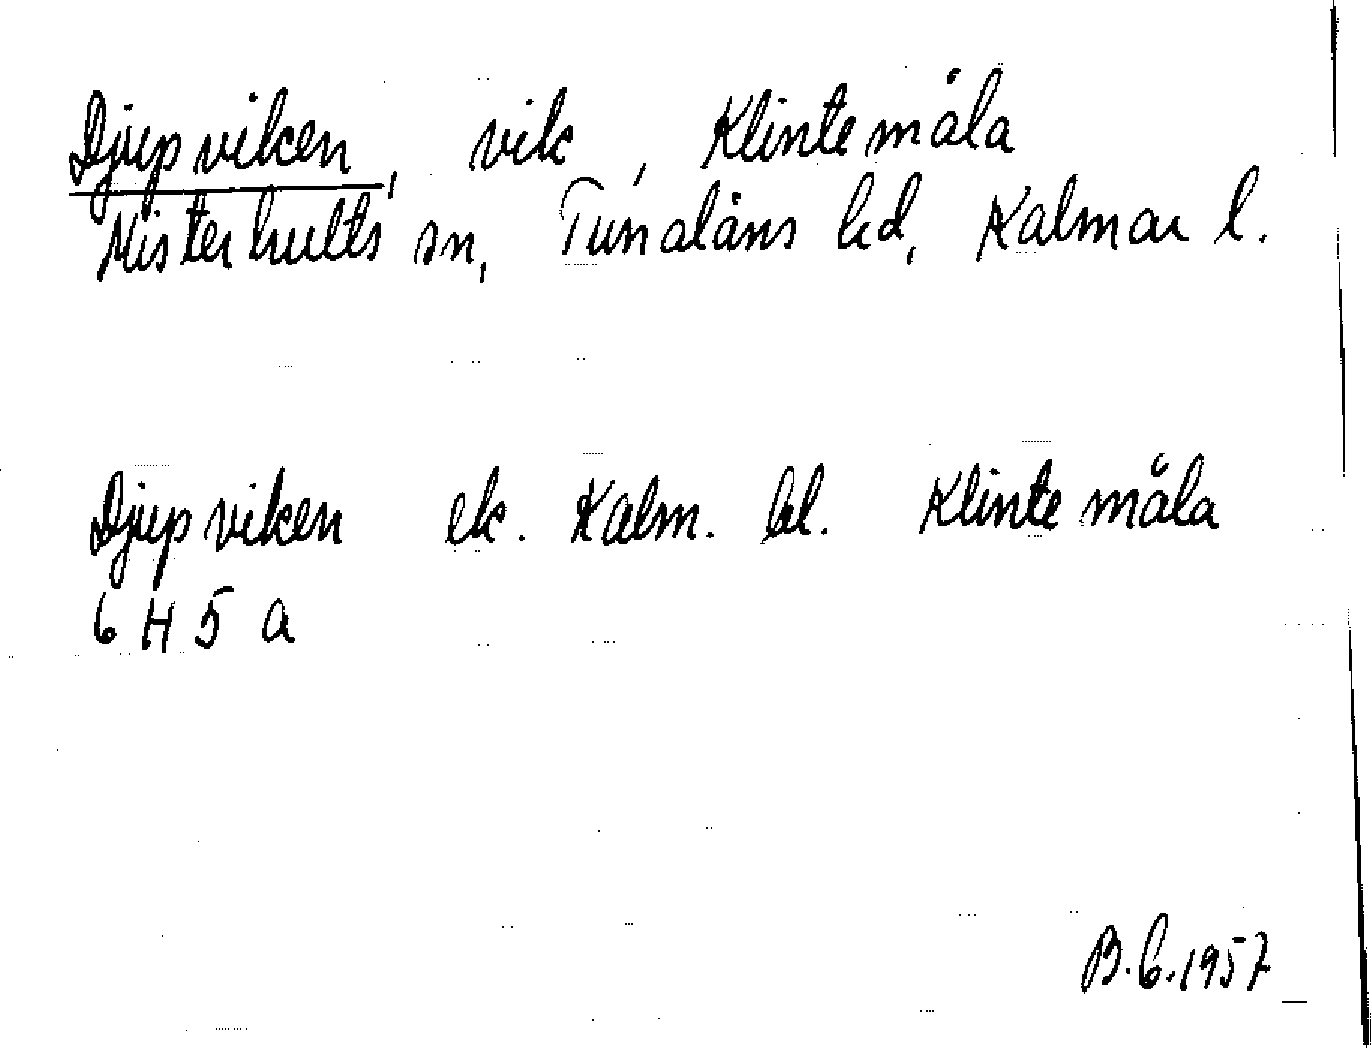 Djupviken, vik, Klintemåla
Misterhults sn, Tunaläns hd, Kalmar l.
Djupviken ek. Kalm. bl. Klintemåla
6 H 5 a
B.G.1957